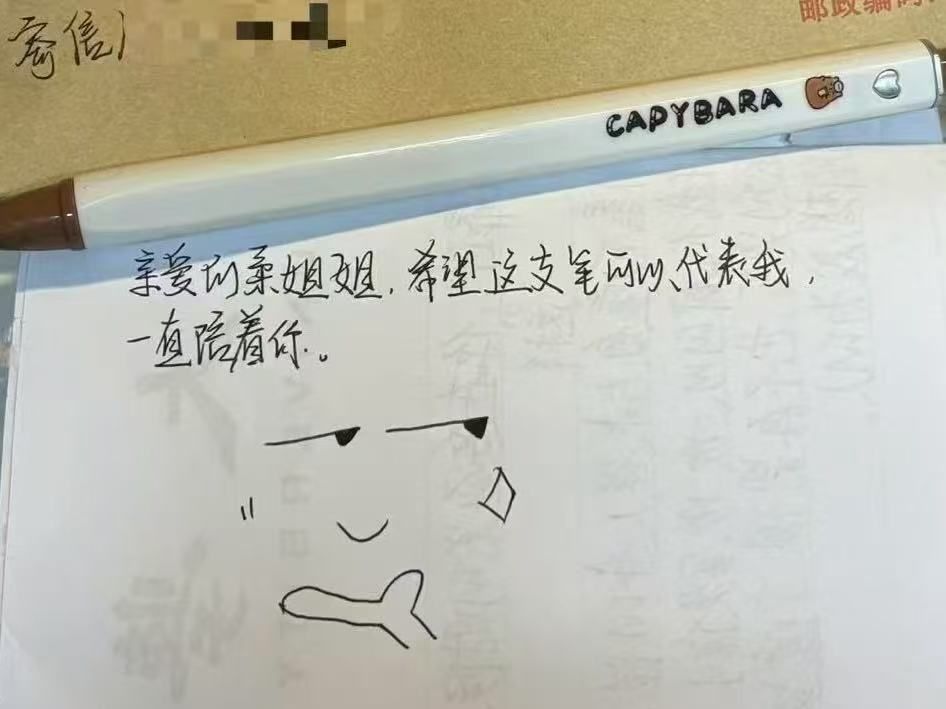 寄信人
邮政编码
CAPYBARA
亲爱的柔姐姐,希望这支笔可以代表我,
一直陪着你。